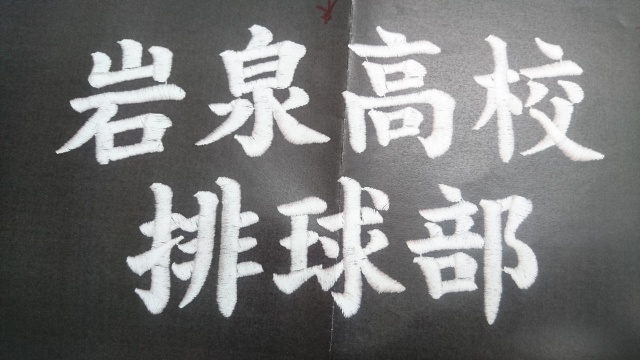 岩泉高校
排球部